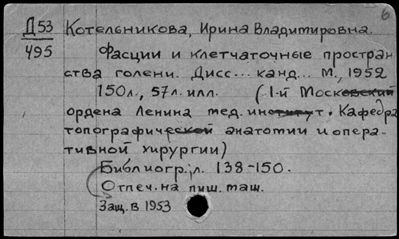 6
Д53 Котельникова, Ирина Владимировна.
495 Фасции и клетчаточные простран
ства голени. Дисс... канд... М., 1952
150л., 57л. илл. (1-й Московский
ордена Ленина мед. институт. Кафедра
топографической анатомии и опера-
тивной хирургии)
Библиогр.: л. 138-150.
Отпеч. на пиш. маш.
Защ. в 1953